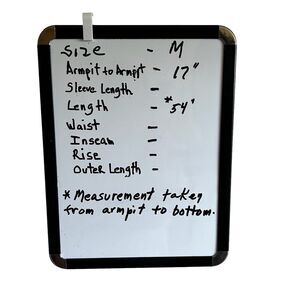 Size - M
Armpit to Armpit - 17"
Sleeve Length -
Length - *54"
Waist -
Inseam -
Rise -
Outer Length -
*Measurement taken
from armpit to bottom.